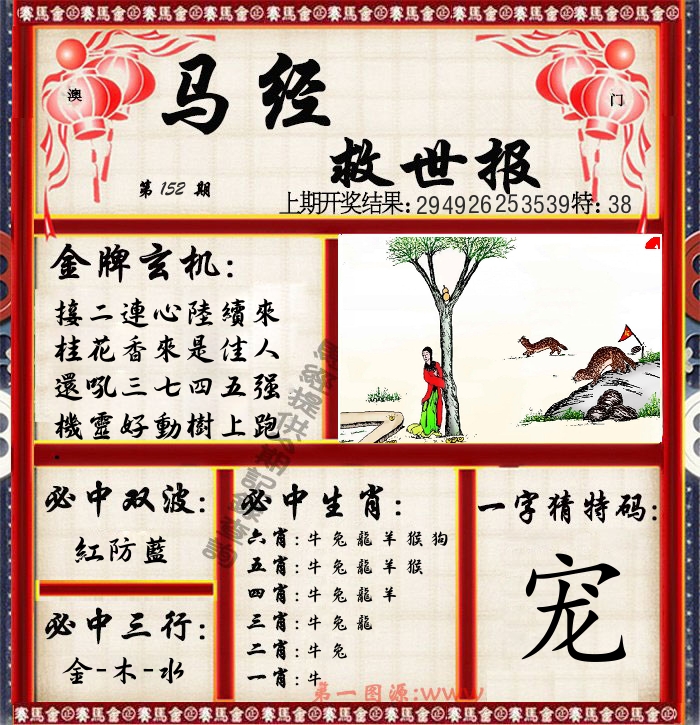 賽馬會㊣賽馬會㊣賽馬會㊣賽馬會㊣賽馬會㊣賽馬會㊣賽馬會㊣賽馬會
澳
门
马经
救世报
第 152 期
上期开奖结果:294926253539特:38
金牌玄机:
接二連心陸續來
桂花香來是佳人
還吼三七四五强
機靈好動樹上跑
必中双波:
紅防藍
必中三行:
金-木-水
必中生肖:
六肖:牛兔龍羊猴狗
五肖:牛兔龍羊猴
四肖:牛兔龍羊
三肖:牛兔龍
二肖:牛兔
一肖:牛
一字猜特码:
宠
第一图源:www